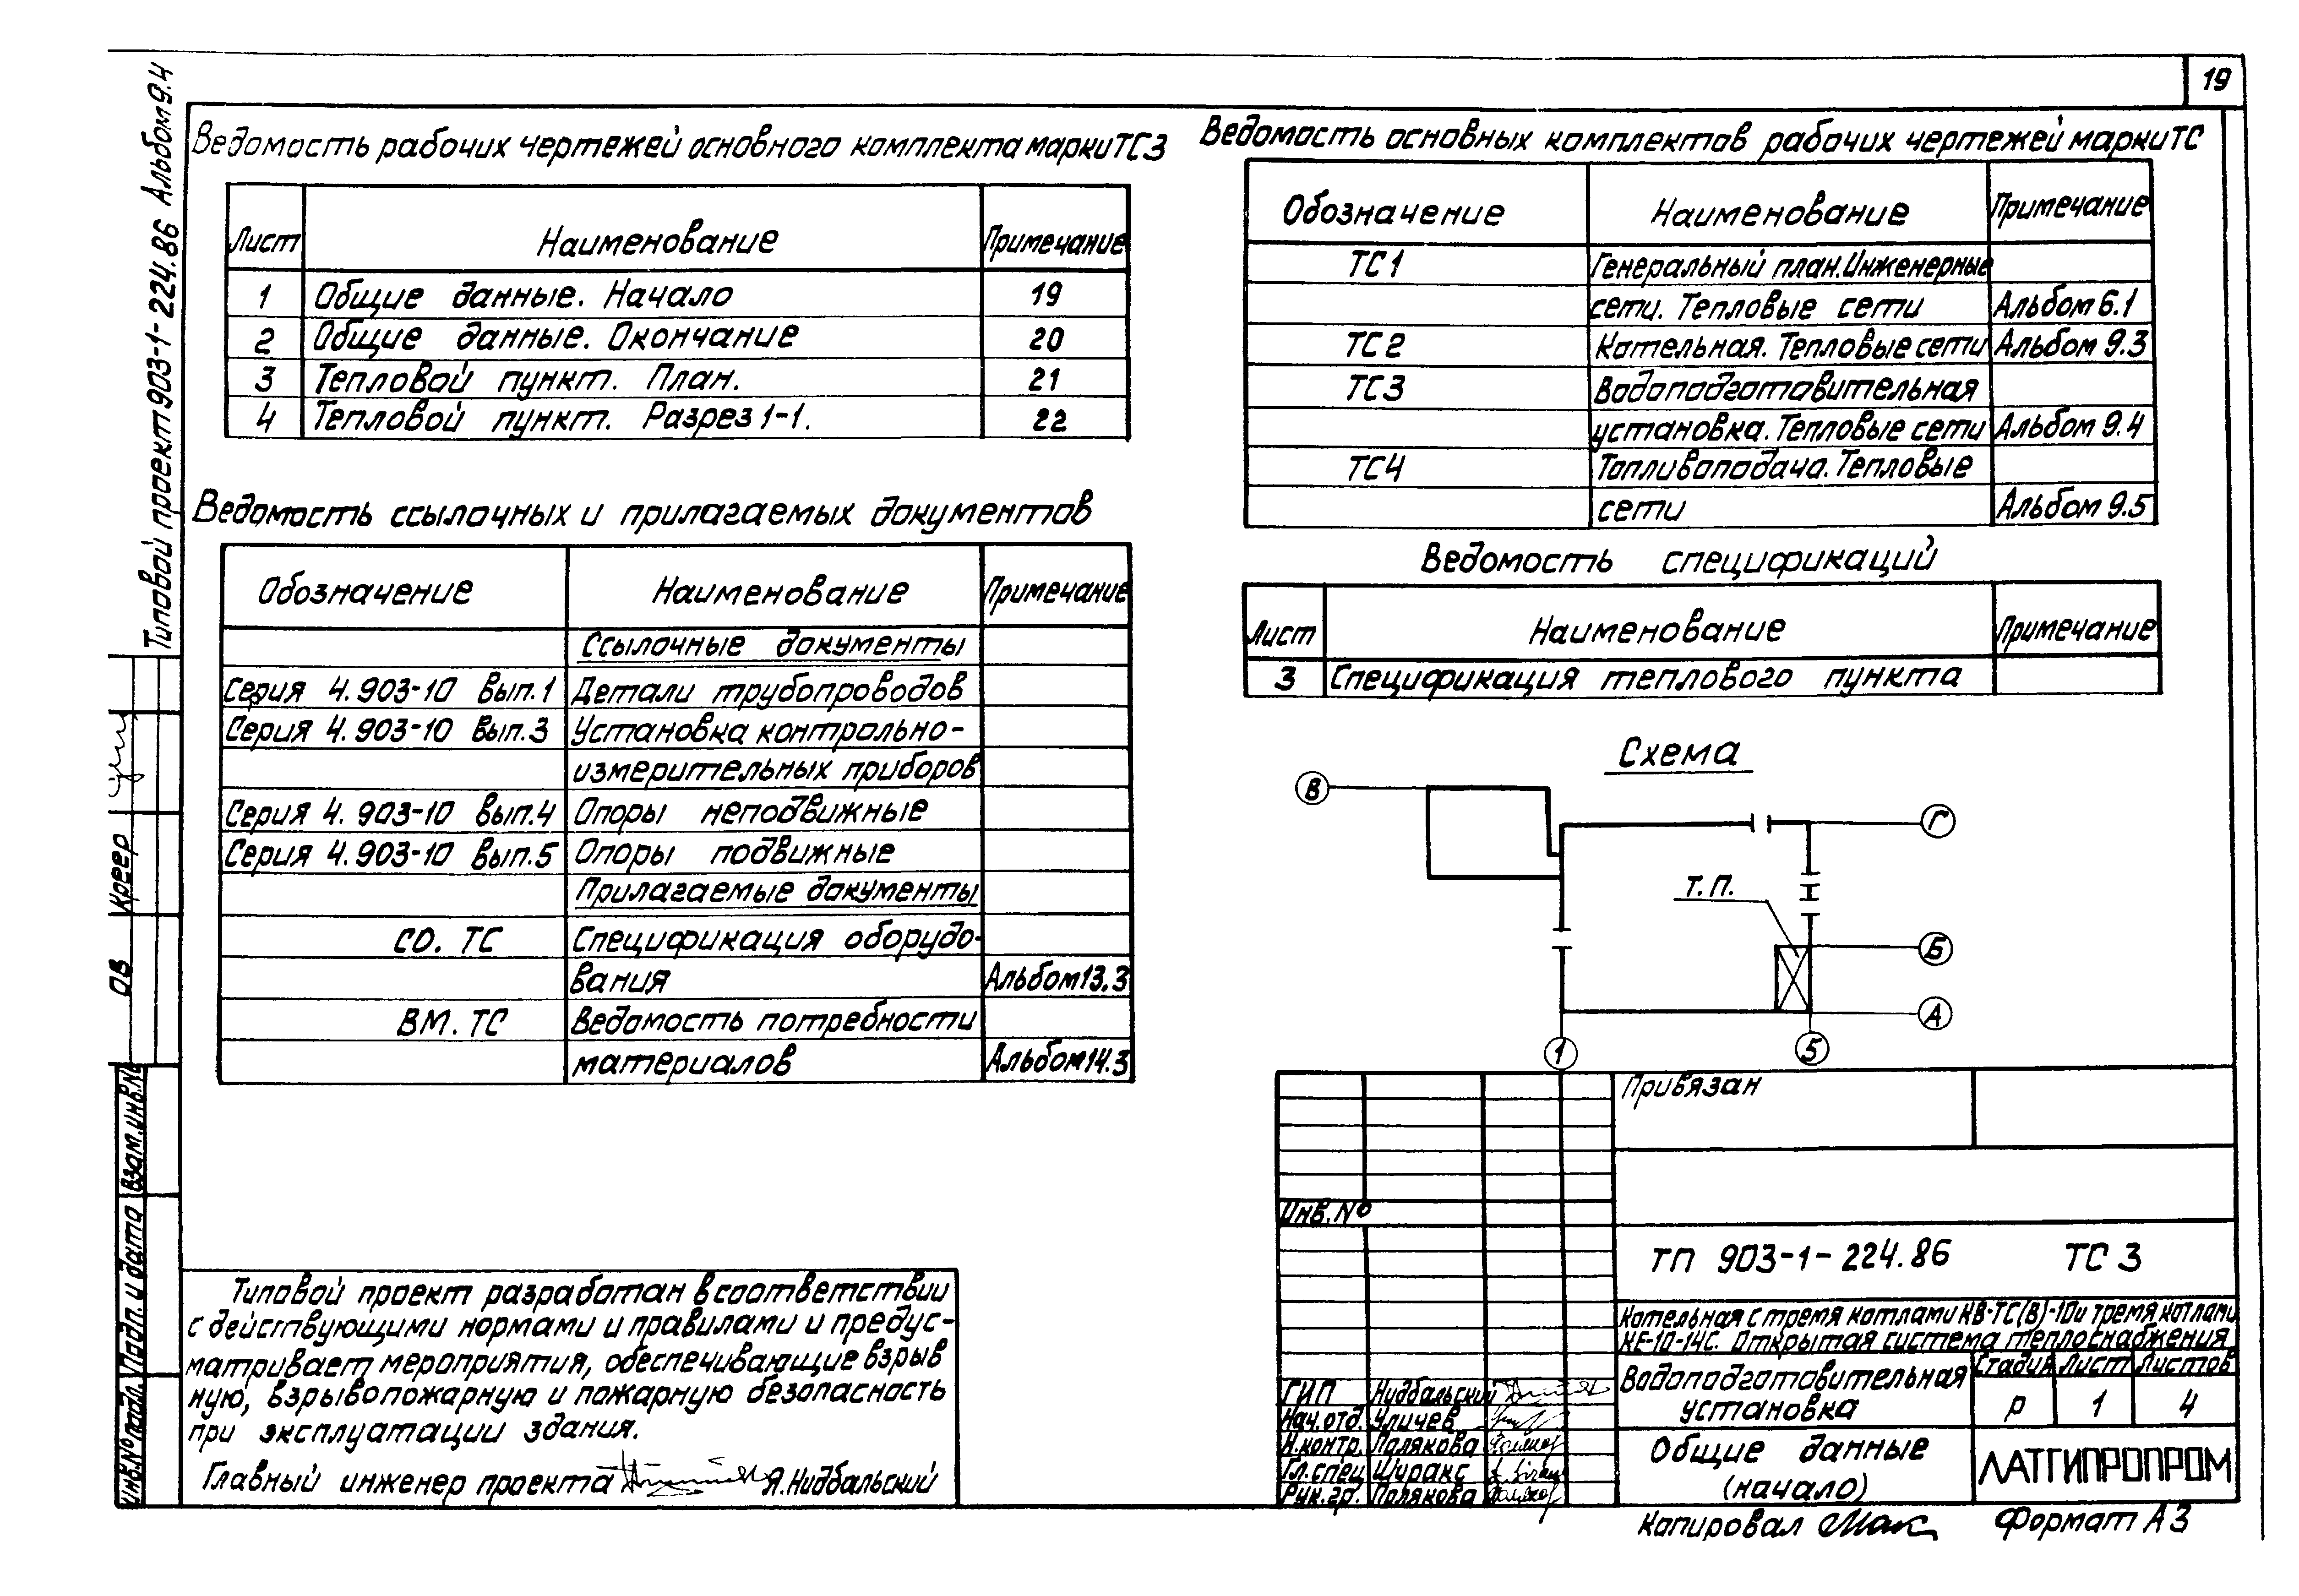 19
Типовой проект 903-1-224.86 Альбом 9.4
Ведомость рабочих чертежей основного комплекта марки ТС3
Лист Наименование Примечание
1 Общие данные. Начало 19
2 Общие данные. Окончание 20
3 Тепловой пункт. План. 21
4 Тепловой пункт. Разрез 1-1. 22
Ведомость ссылочных и прилагаемых документов
Обозначение Наименование Примечание
Ссылочные документы
Серия 4.903-10 вып.1 Детали трубопроводов
Серия 4.903-10 вып.3 Установка контрольно-
измерительных приборов
Серия 4.903-10 вып.4 Опоры неподвижные
Серия 4.903-10 вып.5 Опоры подвижные
Прилагаемые документы
СО. ТС Спецификация оборудо-
вания Альбом 13.3
ВМ. ТС Ведомость потребности
материалов Альбом 14.3
Ведомость основных комплектов рабочих чертежей марки ТС
Обозначение Наименование Примечание
ТС1 Генеральный план. Инженерные
сети. Тепловые сети Альбом 6.1
ТС2 Котельная. Тепловые сети Альбом 9.3
ТС3 Водоподготовительная
установка. Тепловые сети Альбом 9.4
ТС4 Топливоподача. Тепловые
сети Альбом 9.5
Ведомость спецификаций
Лист Наименование Примечание
3 Спецификация теплового пункта
Схема
В
Г
Т.П.
Б
А
1 5
Типовой проект разработан в соответствии
с действующими нормами и правилами и предус-
матривает мероприятия, обеспечивающие взрыв
ную, взрывопожарную и пожарную безопасность
при эксплуатации здания.
Главный инженер проекта Я.Нидбальский
ОВ Креер
Взам.инв.№
Подп. и дата
Инв.№ подл.
Привязан
Инв.№
ТП 903-1-224.86 ТС 3
Котельная с тремя котлами КВ-ТС(В)-10 и тремя котлами
КЕ-10-14С. Открытая система теплоснабжения
ГИП Нидбальский
Нач.отд. Уличев
Н.контр. Полякова
Гл.спец Шуракс
Рук.гр. Полякова
Водоподготовительная
установка
Стадия Лист Листов
Р 1 4
Общие данные
(начало)
ЛАТГИПРОПРОМ
Копировал Формат А3